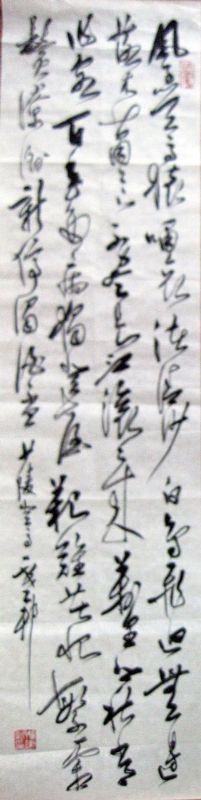 風急天高猿嘯哀渚清沙白鳥飛迴無邊
落木蕭々下不盡長江滾々來萬里悲秋常
作客百年多病獨登臺艱難苦恨繁霜
鬢潦倒新停濁酒杯少陵登高